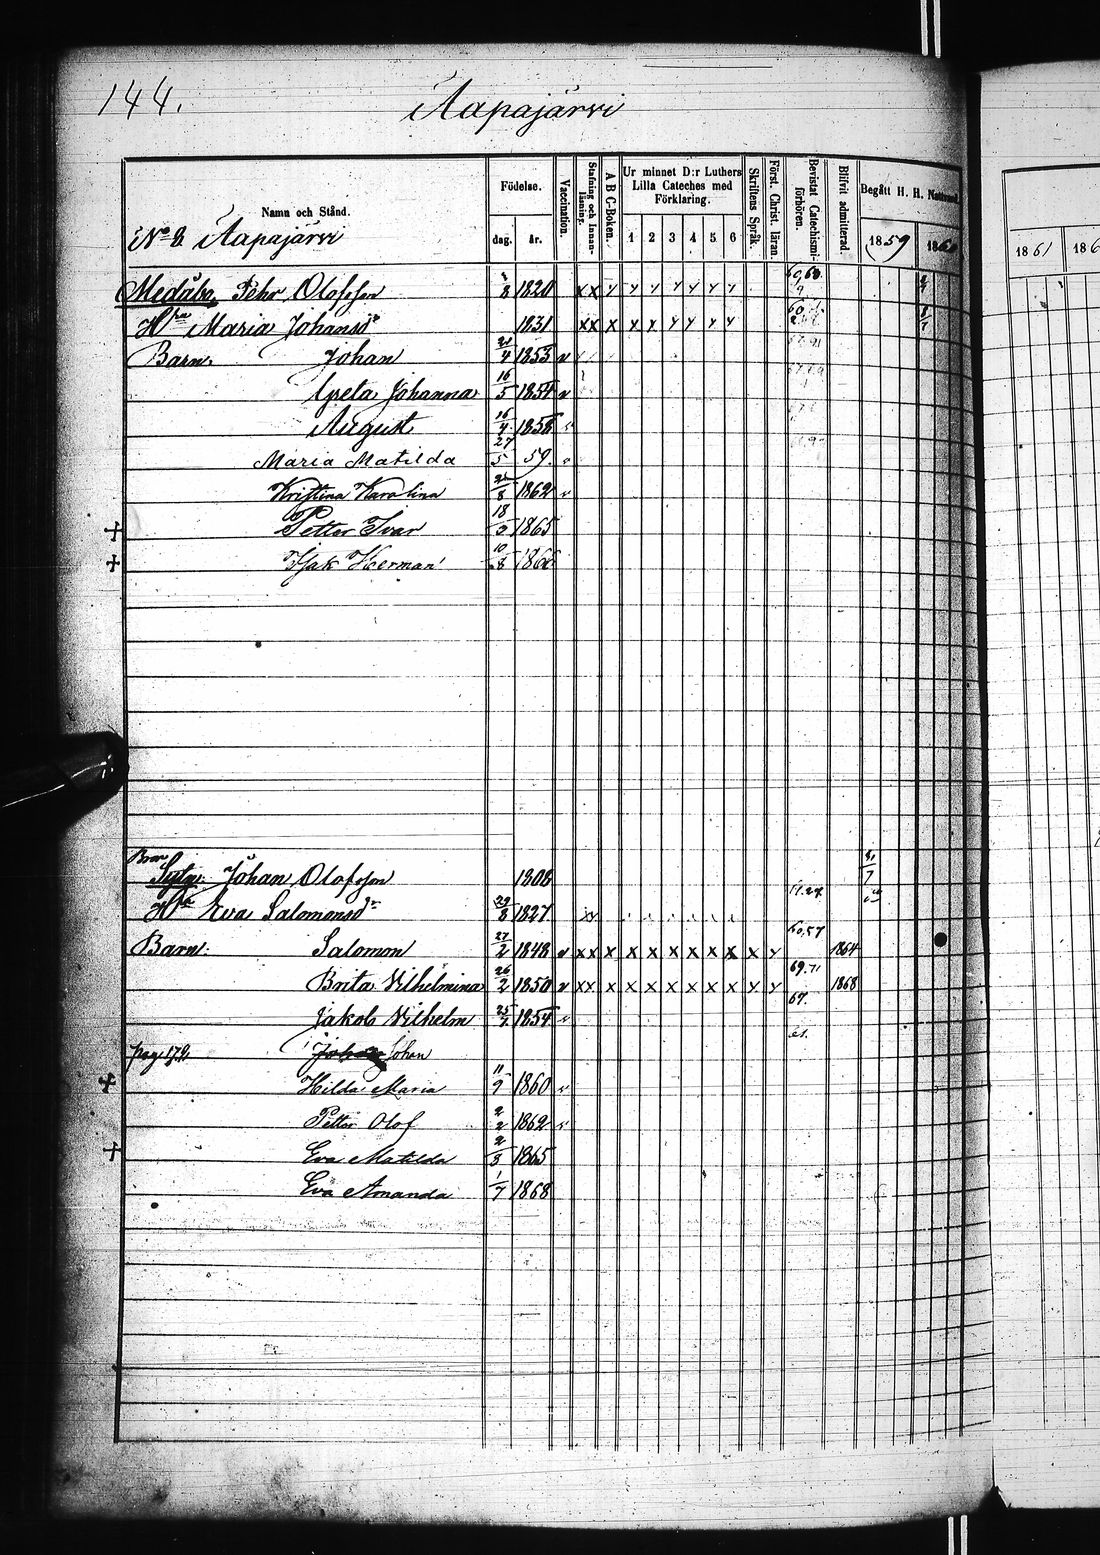 144.
Aapajärvi
Namn och Stånd.
Födelse.
dag.
år.
Vaccination.
Stafning och Innanläsning.
A B C-Boken.
Ur minnet D:r Luthers Lilla Cateches med Förklaring.
1 2 3 4 5 6
Skriftens Språk.
Först. Christ. läran.
Bevistat Catechismiförhören.
Blifvit admitterad.
Begått H. H. Nattvard.
1859 1860
1861 186
No 8. Aapajärvi
Pehr Olofsson 8 1820 x x y y y y y y y
Hru Maria Johansdr 1831 x x x y y y y y y
Barn: Johan 4 1853 v
Greta Johanna 16/5 1854 v
August 16/4 1858 v
Maria Matilda 27/5 59. v
Kristina Karolina 8 1862 v
+ Petter Ivar 18 1865
+ Isak Herman 10/8 1866
Johan Olofsson 1806
Hru Eva Salomonsdr 29/8 1827 x x
Barn: Salomon 27/2 1848 v x x x x x x x x x x y 60,57 1864
Brita Vilhelmina 26/2 1850 v x x x x x x x x x y y 69.71 1868
Jakob Vilhelm 25/7 1854 v 67.
pag 172 Johan
+ Hilda Maria 11/9 1860 v
Petter Olof 2/2 1862 v
+ Eva Matilda 2/8 1865
Eva Amanda 1/7 1868